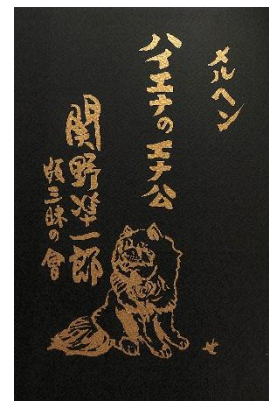 メルヘン
ハイエナのエナ公
関野凖一郎
版三昧の會